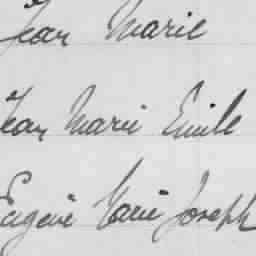 Jean Marie
Jean Marie Emile
Eugène Marie Joseph